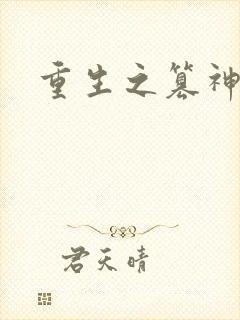 重生之篡神
君天晴